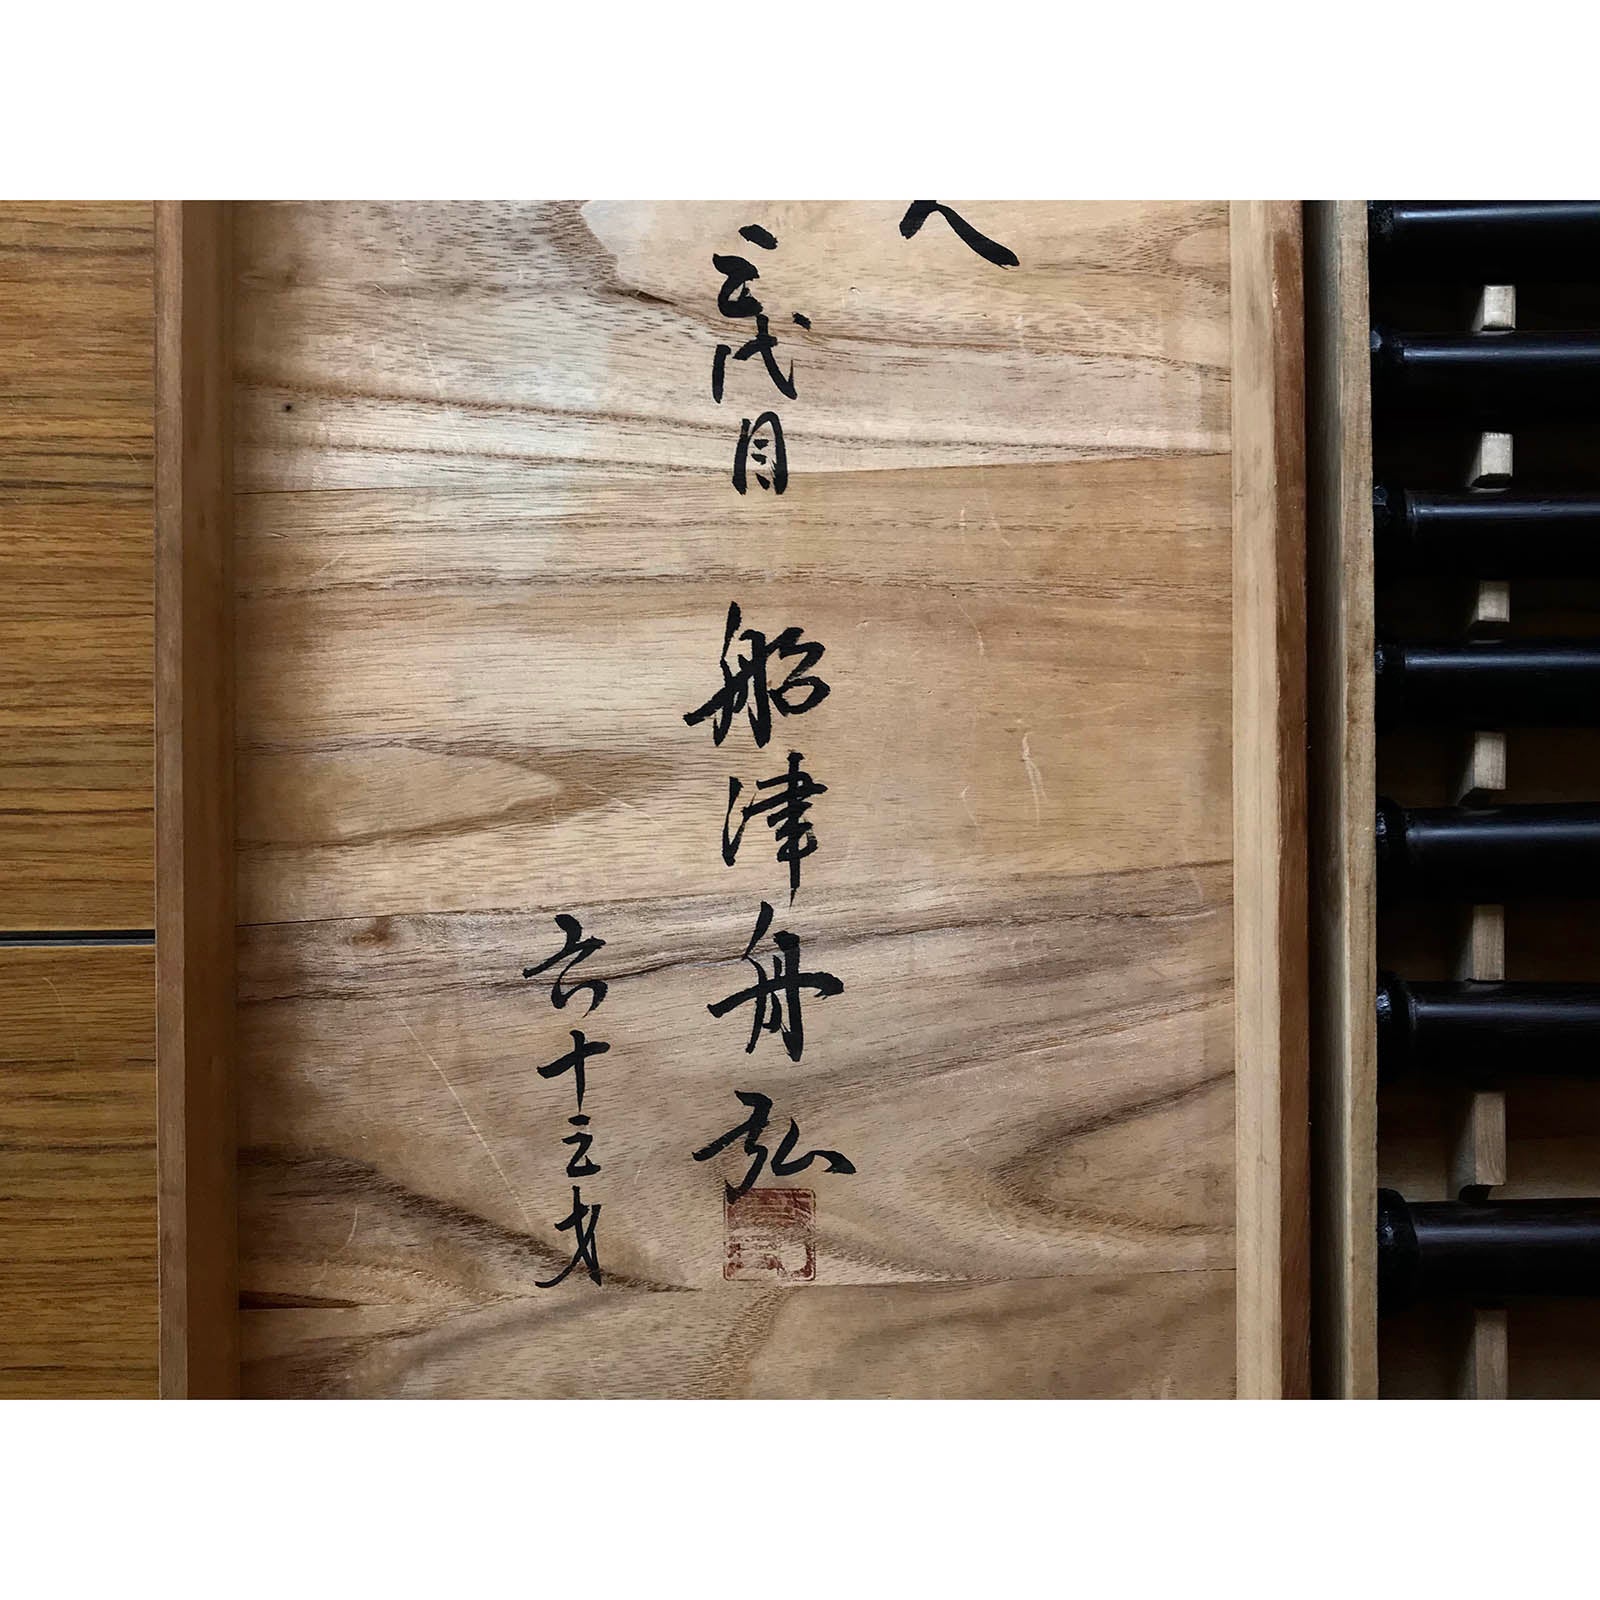 三代目 船津舟弘
六十三才